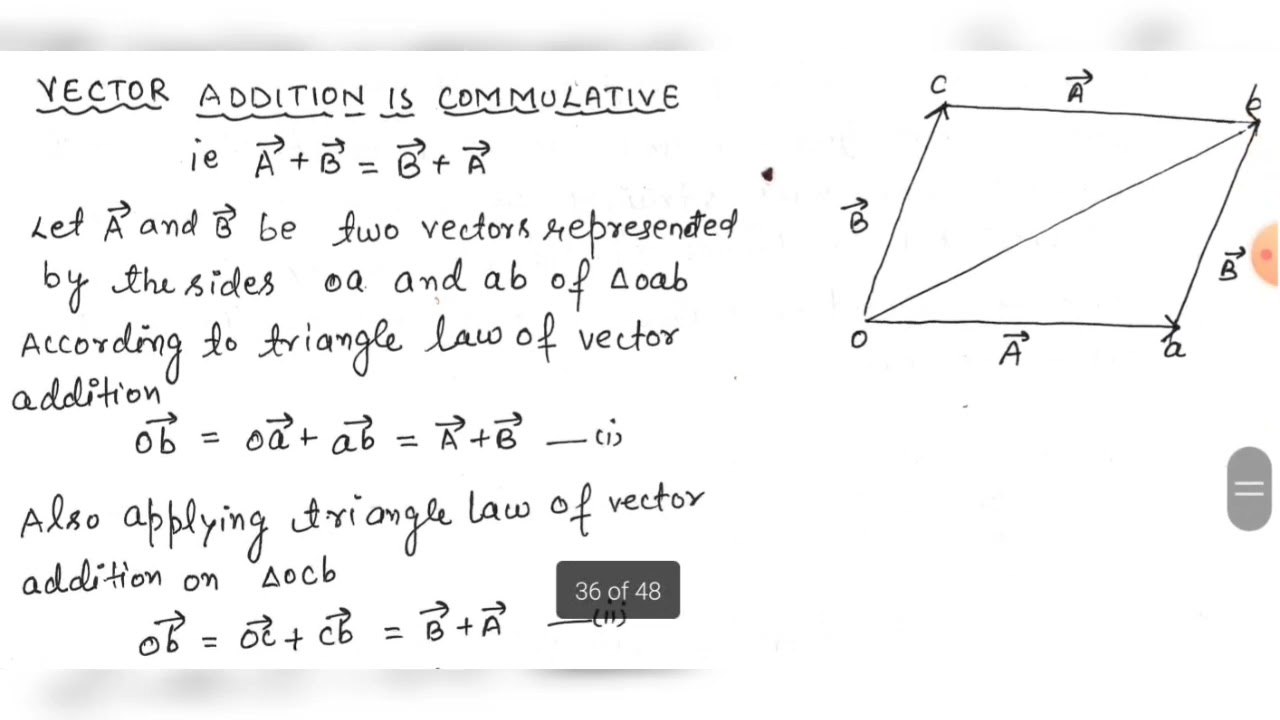 VECTOR ADDITION IS COMMULATIVE
ie A⃗ + B⃗ = B⃗ + A⃗
Let A⃗ and B⃗ be two vectors represented
by the sides oa and ab of Δoab
According to triangle law of vector
addition
ob⃗ = oa⃗ + ab⃗ = A⃗ + B⃗ —(i)
Also applying triangle law of vector
addition on Δocb
ob⃗ = oc⃗ + cb⃗ = B⃗ + A⃗ —(ii)
36 of 48
c A⃗ b
B⃗
B⃗
o A⃗ a